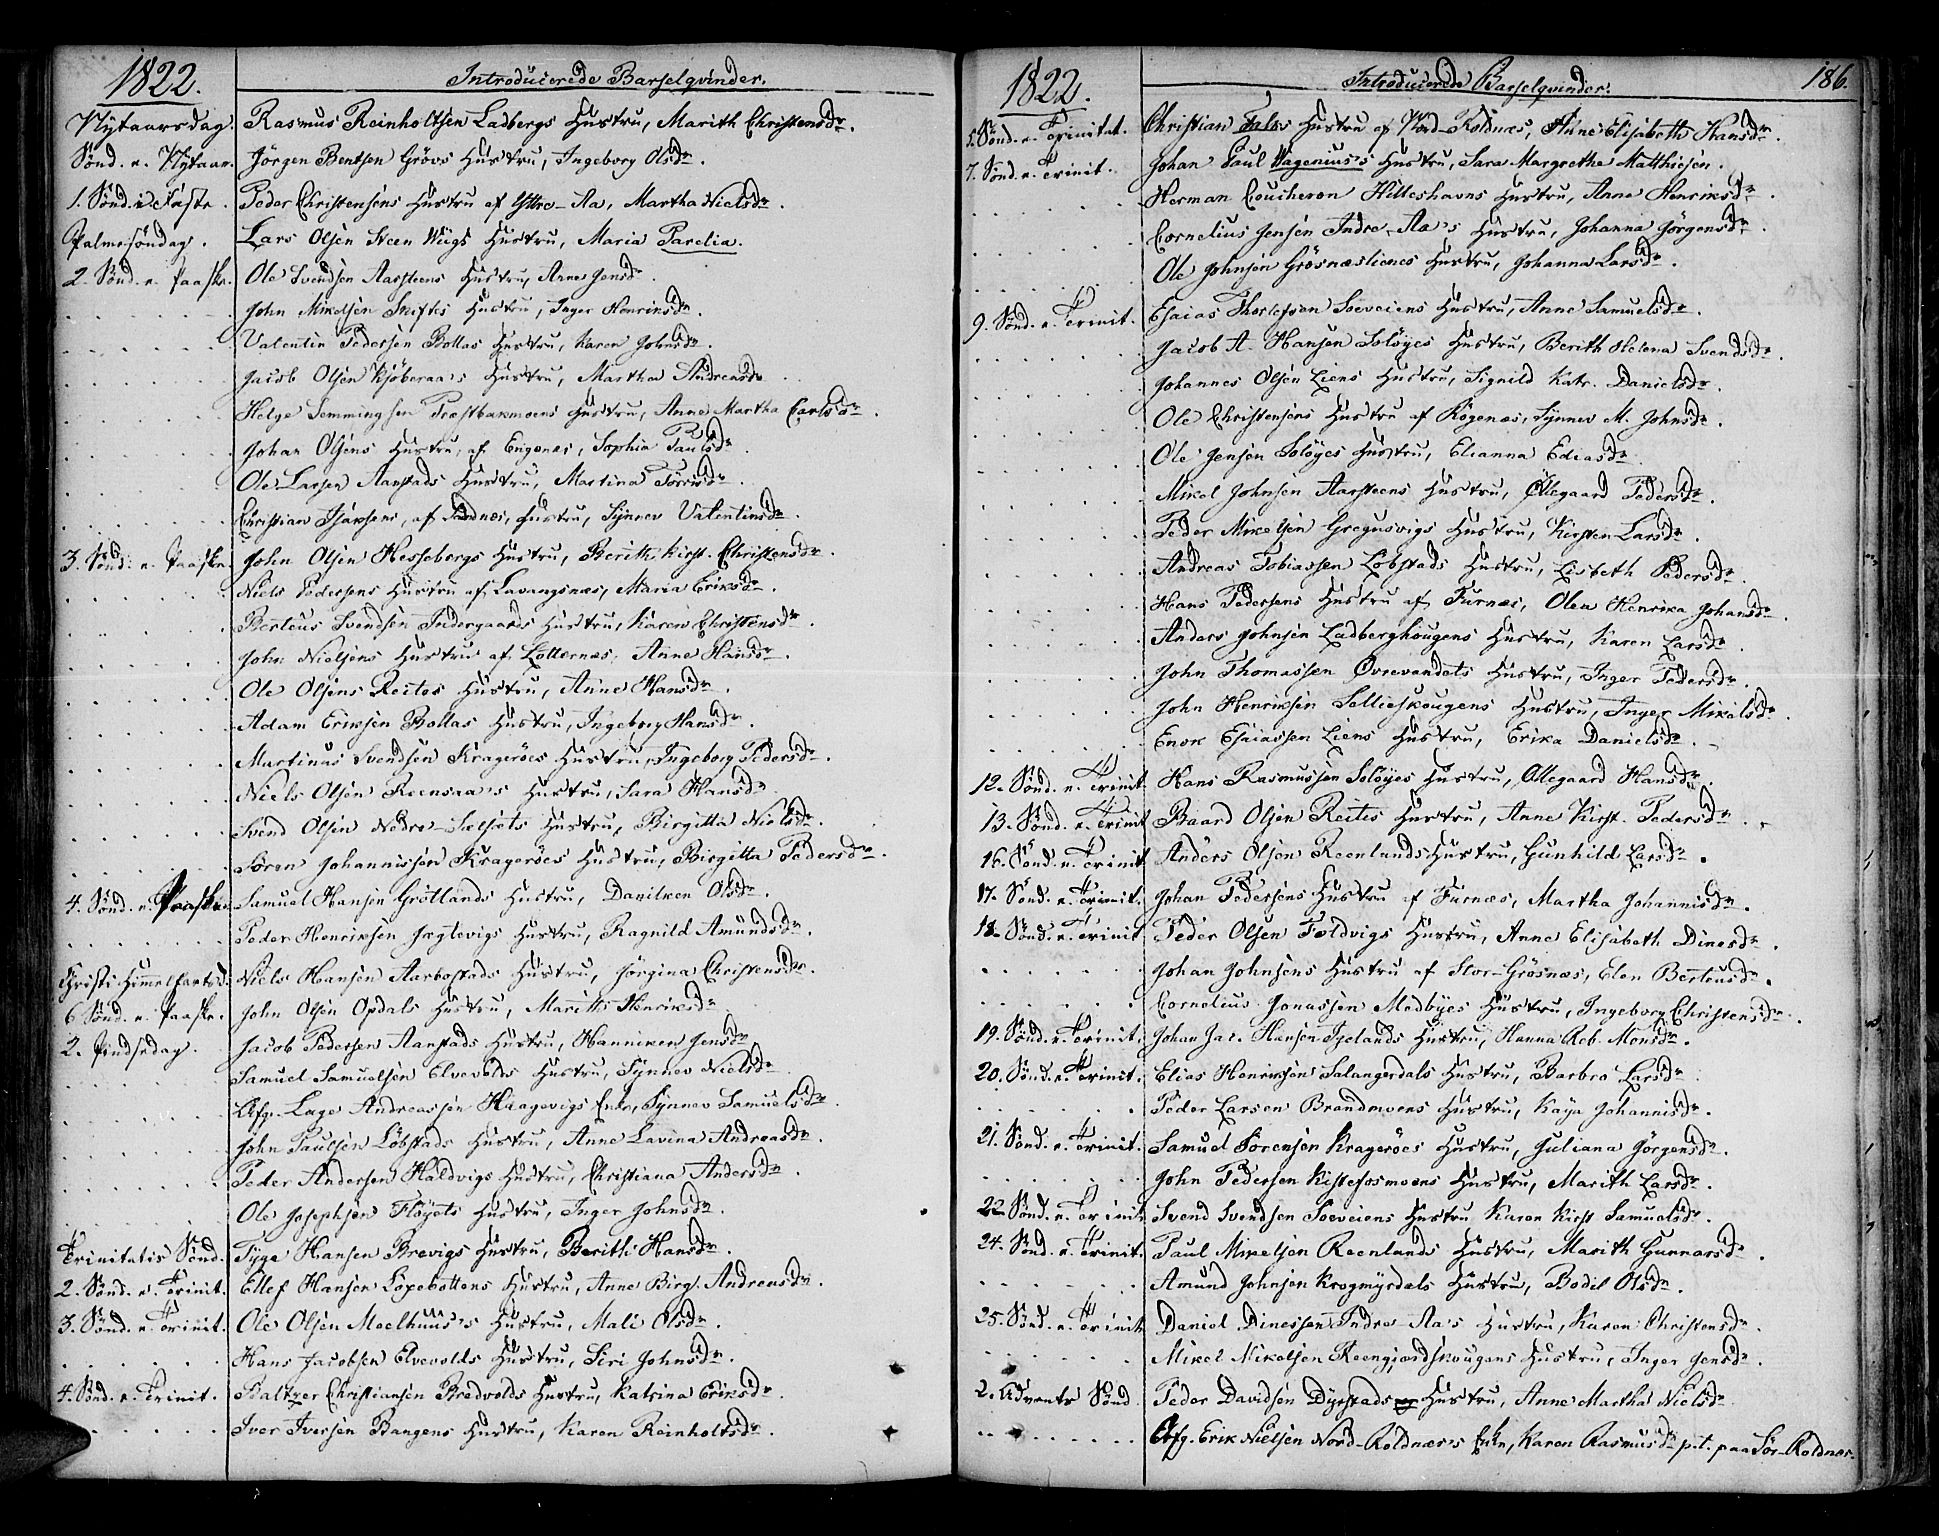 1822.
Introducerede Barselqvinder.
Nytaarsdag. Rasmus Reinholtsen Ladbergs Hustru, Marith Christensdr.
Sönd. e. Nytaar. Jörgen Bentsen Grövs Hustru, Ingeborg Olsdr.
1. Sönd. i Faste. Peder Christensens Hustru af Yttre-Aa, Martha Nielsdr.
Palmesöndag. Lars Olsen Steen Wiigs Hustru, Maria Parelia.
2. Sönd. e. Paaske. Ole Svendsen Aarsteens Hustru, Anne Jensdr.
John Mikelsen Skiftes Hustru, Inger Henriksdr.
Valentin Pedersen Bollas Hustru, Karen Johnsdr.
Jacob Olsen Kjöberaa's Hustru, Martha Andreasdr.
Helge Semmingsen Præstbakmoens Hustru, Anne Martha Carlsdr.
Johan Olsens Hustru, af Engenæs, Sophia Paulsdr.
Ole Larsen Aanstads Hustru, Martina Torrisdr.
Christian Isaksens, af Sandnæs, Hustru, Synnev Valentinsdr.
3. Sönd. e. Paaske. John Olsen Hessebergs Hustru, Berith Kirst. Christensdr.
Niels Pedersens Hustru af Lavangsnæs, Maria Eriksdr.
Berteus Svendsen Indergaards Hustru, Karen Christensdr.
John Nielsens Hustru af Lotternæs, Anne Hansdr.
Ole Olsens Reites Hustru, Anne Hansdr.
Adam Eriksen Bollas Hustru, Ingeborg Hansdr.
Martinus Svendsen Krageröes Hustru, Ingeborg Pedersdr.
Niels Olsen Reensaa's Hustru, Sara Hansdr.
Svend Olsen Nedre-Sælsets Hustru, Birgitta Nielsdr.
Sören Johannissen Krageröes Hustru, Birgitta Pedersdr.
4. Sönd. e. Paaske. Samuel Hansen Grötlands Hustru, Danilken Olsdr.
Peder Henriksen Jægtevigs Hustru, Ragnild Amundsdr.
Christi Himmelfartsd. Niels Hansen Aarbostads Hustru, Jörgina Christensdr.
6 Sönd. e. Paaske. John Olsen Opdals Hustru, Marith Henriksdr.
2. Pindsedag. Jacob Pedersen Aanstads Hustru, Hanniken Jensdr.
Samuel Samuelsen Elvevolds Hustru, Synnev Nielsdr.
Afg. Lage Andreassen Haagevigs Enke, Synnev Samuelsdr.
John Paulsen Löbstads Hustru, Anne Lavina Andreasdr.
Peder Andersen Haldvigs Hustru, Christiana Andersdr.
Ole Josephsen Flöyets Hustru, Inger Johnsdr.
Trinitatis Sönd. Tyge Hansen Brevigs Hustru, Berith Hansdr.
2. Sönd. e. Trinit. Ellef Hansen Löpebottens Hustru, Anne Birg. Andreasdr.
3. Sönd. e. Trinit. Ole Olsen Moelhuus's Hustru, Mali Olsdr.
Hans Jacobsen Elvevolds Hustru, Siri Johnsdr.
4. Sönd. e. Trinit. Baltzer Christiansen Bredvolds Hustru, Katrina Eriksdr.
Iver Iversen Bangens Hustru, Karen Reinholtsdr.
1822.
Introducerede Barselqvinder.
186.
5. Sönd. e. Trinitat. Christian Falks Hustru af Nord-Roldnæs, Anne Elisabeth Hansdr.
7. Sönd. e. Trinit. Johan Paul Wagenius's Hustru, Sara Margrethe Matthiesen.
Herman Coucheron Hilleshavns Hustru, Anne Henriksdr.
Cornelius Jensen Indre-Aa's Hustru, Johanna Jörgensdr.
Ole Johnsen Grösnæslienes Hustru, Johanna Larsdr.
9. Sönd. e. Trinit. Esaias Thorlefsen Soeveiens Hustru, Anne Samuelsdr.
Jacob A. Hansen Solöyes Hustru, Berith Helena Svendsdr.
Johannes Olsen Liens Hustru, Signild Katr. Danielsdr.
Ole Christensens Hustru af Rögenæs, Synnev M. Johnsdr.
Ole Jensen Solöyes Hustru, Elianna Ediasdr.
Mikel Johnsen Aarsteens Hustru, Ollegaard Pedersdr.
Peder Mikelsen Gregusvigs Hustru, Kirsten Larsdr.
Andreas Tobiassen Löbstads Hustru, Lisbeth Pedersdr.
Hans Pedersens Hustru af Furnæs, Olea Henrika Johansdr.
Anders Johnsen Ladberghougens Hustru, Karen Larsdr.
John Thomassen Övrevandets Hustru, Inger Pedersdr.
John Henriksen Sellieskougens Hustru, Inger Mikelsdr.
Enok Esaiassen Liens Hustru, Erika Danielsdr.
12. Sönd. e. Trinit. Hans Rasmussen Solöyes Hustru, Ollegaard Hansdr.
13. Sönd. e. Trinit. Baard Olsen Reites Hustru, Anne Kirst. Pedersdr.
16. Sönd. e. Trinit. Anders Olsen Reenlands Hustru, Gunhild Larsdr.
17. Sönd. e. Trinit. Johan Pedersens Hustru af Furnæs, Martha Johannisdr.
18. Sönd. e. Trinit. Peder Olsen Foldvigs Hustru, Anne Elisabeth Dinesdr.
Johan Johnsens Hustru af Stor-Grösnæs, Elen Berteusdr.
Cornelius Jonassen Medbyes Hustru, Ingeborg Christensdr.
19. Sönd. e. Trinit. Johan Jac. Hansen Tjelands Hustru, Hanna Reb. Monsdr.
20. Sönd. e. Trinit. Elias Henriksen Salangerdals Hustru, Barbro Larsdr.
Peder Larsen Brandmoens Hustru, Kaya Johannisdr.
21. Sönd. e. Trinit. Samuel Sörensen Krageröes Hustru, Juliana Jörgensdr.
John Pedersen Kistefosmoens Hustru, Marith Larsdr.
22 Sönd. e. Trinit. Svend Svendsen Soeveiens Hustru Karen Kirst Samuelsdr.
24. Sönd. e. Trinit. Paul Mikelsen Reenlands Hustru, Marith Gunnarsdr.
Amund Johnsen Krogmyrdals Hustru, Bodil Olsdr.
25. Sönd. e. Trinit. Daniel Dinessen Indre Aa's Hustru, Karen Christensdr.
Mikel Mikelsen Reengjerdskougens Hustru, Inger Jensdr.
2. Advents Sönd. Peder Davidsen Dyrstads Hustru, Anne Martha Nielsdr.
Afg. Erik Nielsen Nord-Roldnæs's Enke, Karen Rasmusdr p.t. paa Sör-Roldnæs.